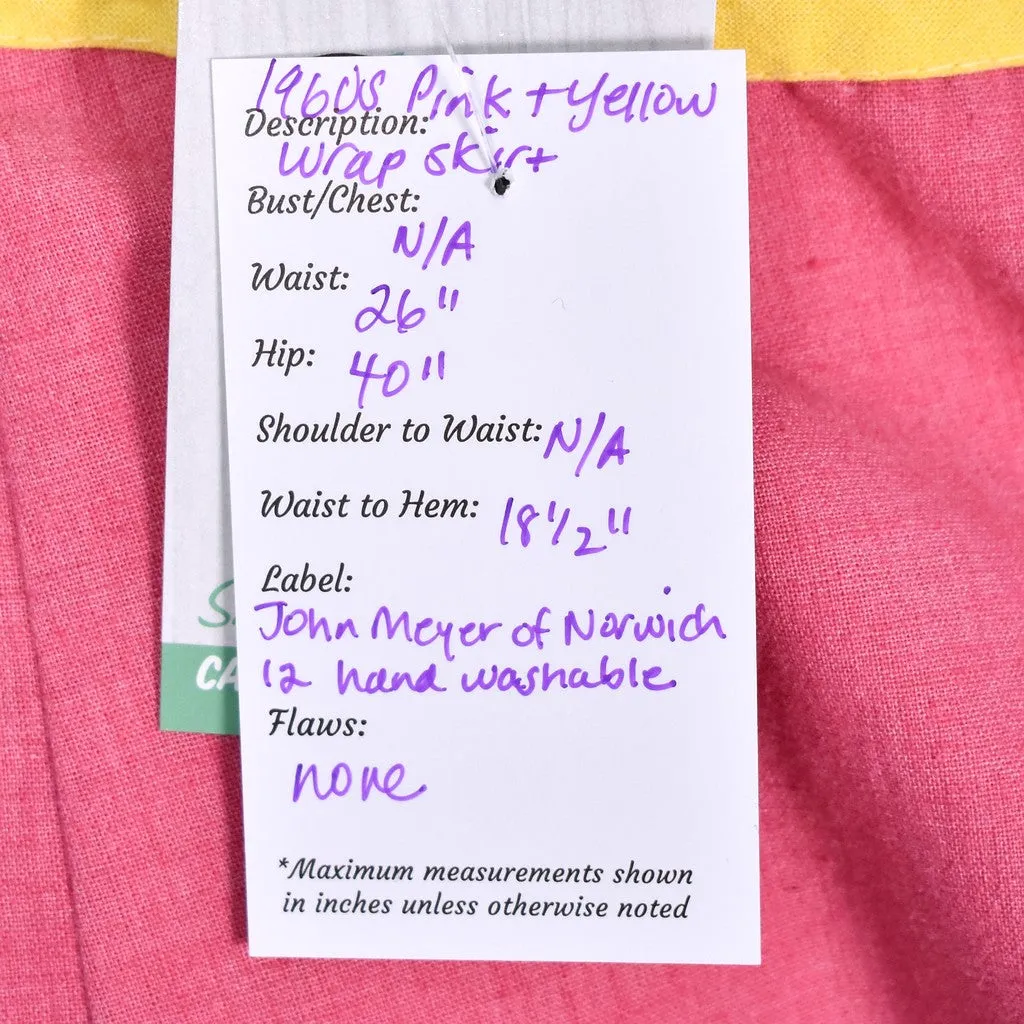 1960s Pink + Yellow
Description:
Wrap skirt
Bust/Chest:
N/A
Waist:
26"
Hip:
40"
Shoulder to Waist: N/A
Waist to Hem: 18 1/2"
Label:
John Meyer of Norwich
12 hand washable
Flaws:
none
*Maximum measurements shown
in inches unless otherwise noted
CA